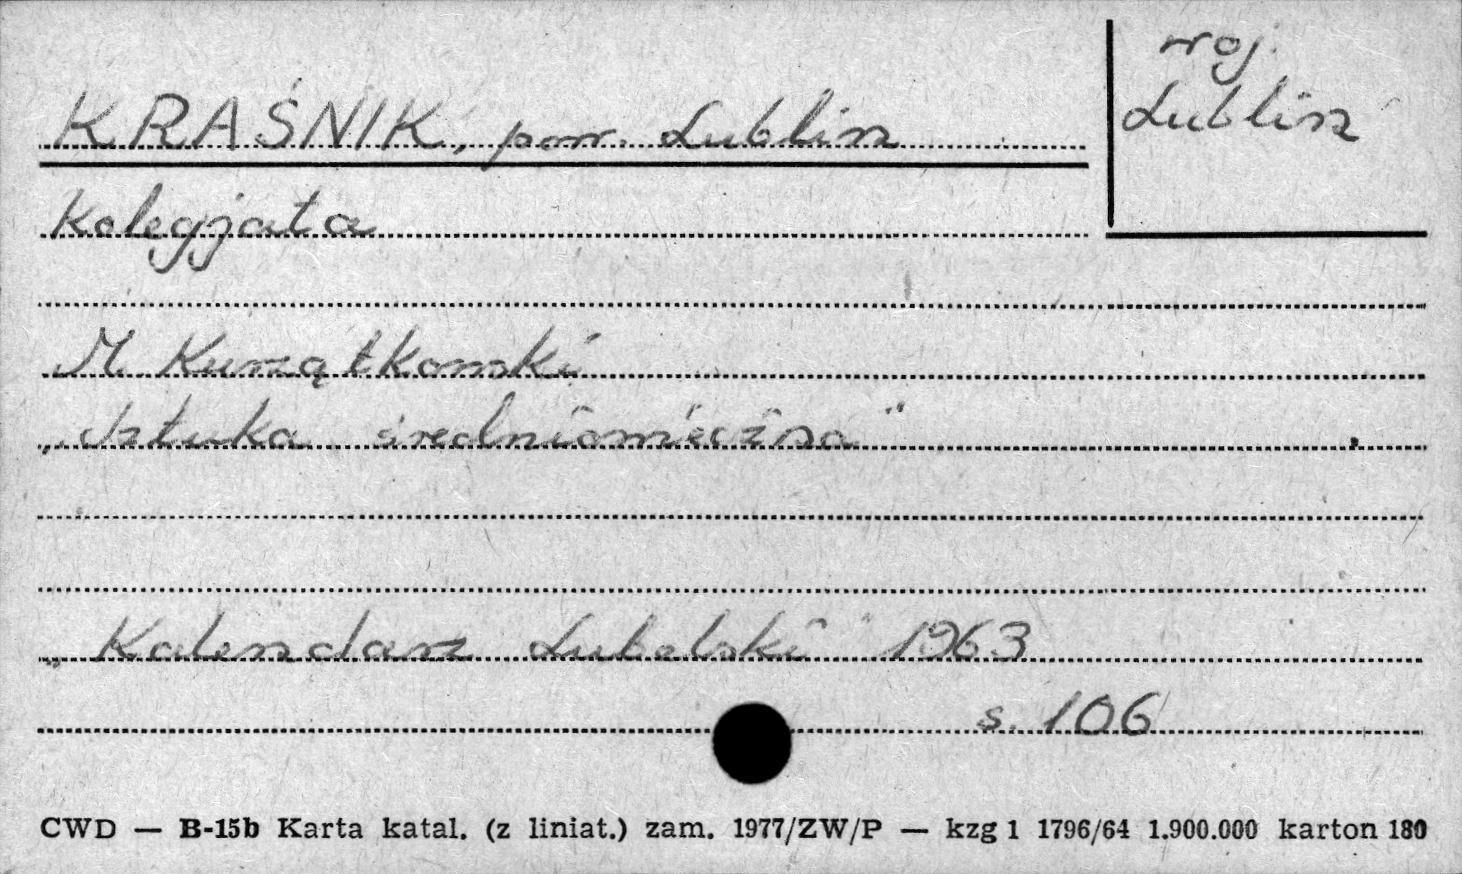 woj.
Lublin
KRAŚNIK, pow. Lublin
Kolegjata
M. Kurzątkowski
„Sztuka średniowieczna"
„Kalendarz Lubelski" 1963
s. 106
CWD — B-15b Karta katal. (z liniat.) zam. 1977/ZW/P — kzg 1 1796/64 1.900.000 karton 180